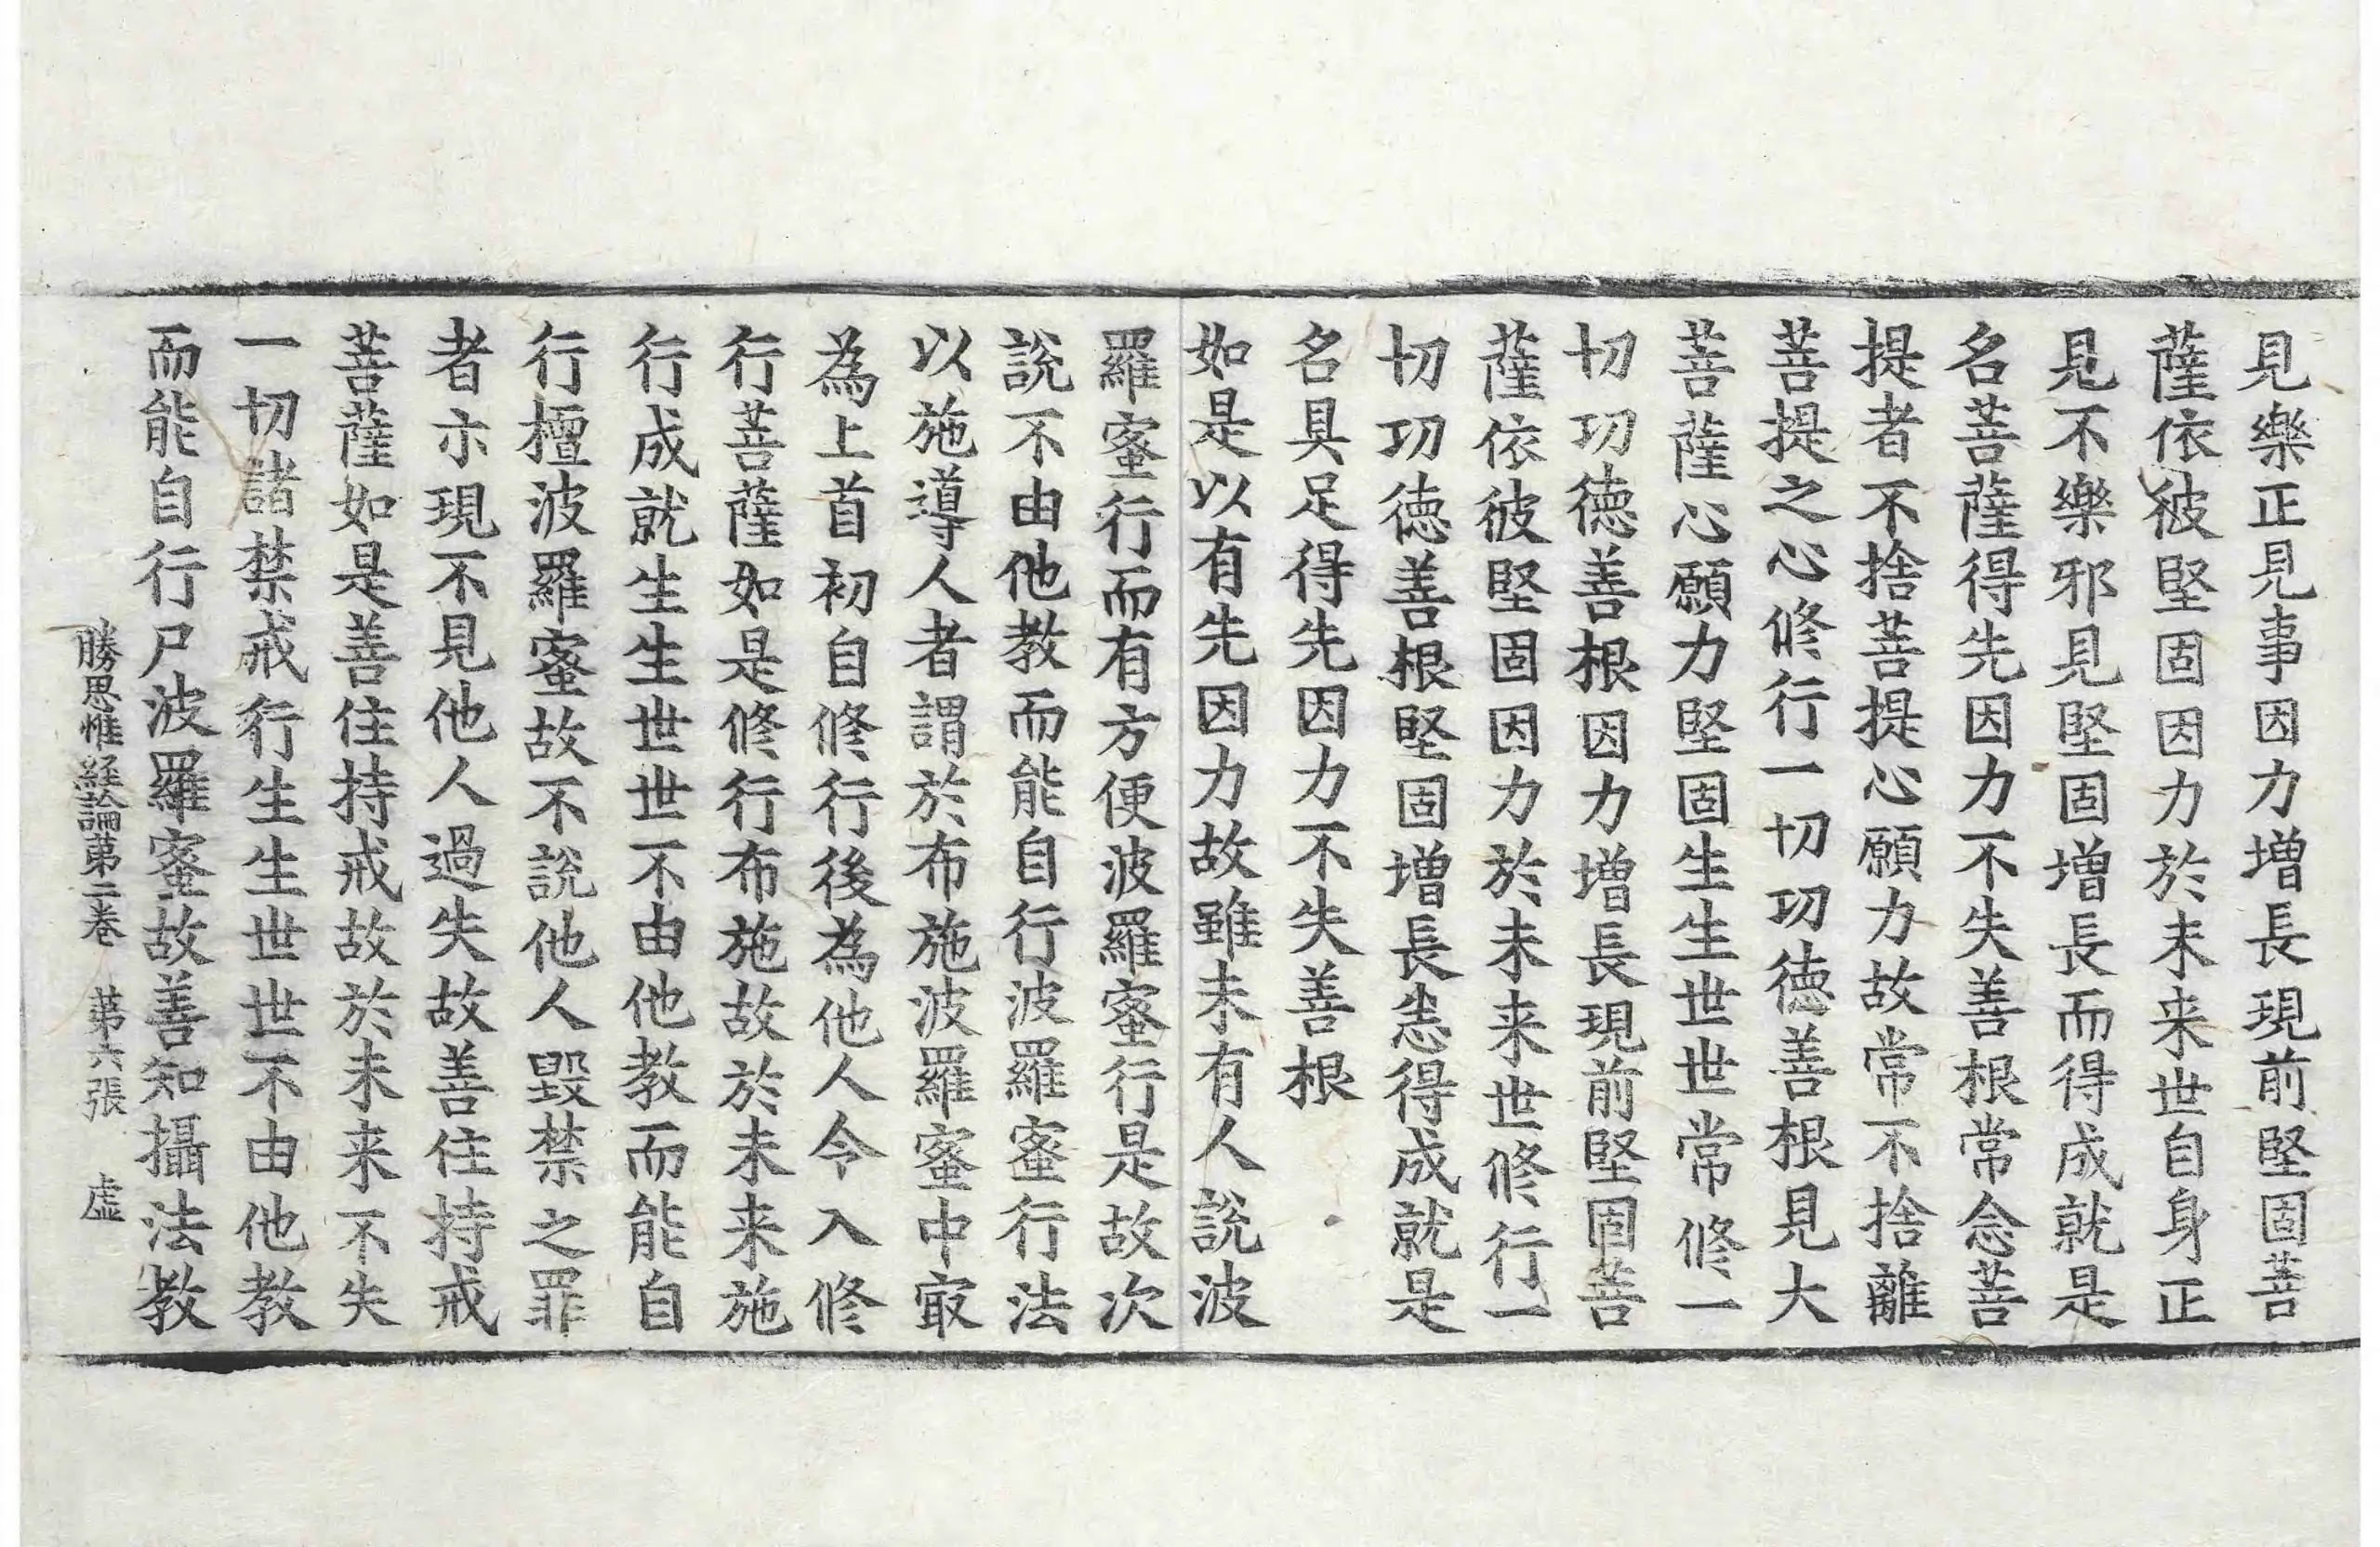 見樂正見事因力增長現前堅固菩
薩依彼堅固因力於未来世自身正
見不樂邪見堅固增長而得成就是
名菩薩得先因力不失善根常念菩
提者不捨菩提心願力故常不捨離
菩提之心修行一切功德善根見大
菩薩心願力堅固生生世世常修一
切功德善根因力增長現前堅固菩
薩依彼堅固因力於未来世修行一
切功德善根堅固增長悉得成就是
名具足得先因力不失善根
如是以有先因力故雖未有人說波
羅蜜行而有方便波羅蜜行是故次
說不由他教而能自行波羅蜜行法
以施導人者謂於布施波羅蜜中㝡
為上首初自修行後為他人令入修
行菩薩如是修行布施故於未来施
行成就生生世世不由他教而能自
行檀波羅蜜故不說他人毀禁之罪
者亦現不見他人過失故善住持戒
菩薩如是善住持戒故於未来不失
一切諸禁戒行生生世世不由他教
而能自行尸波羅蜜故善知攝法教
勝思惟経論苐二卷 苐六張 虛